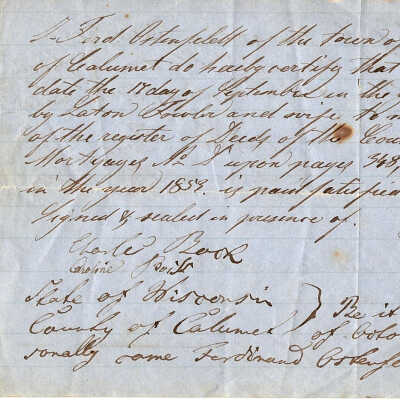 I Ferd Ostenfeldt of the town of
of Calumet do hereby certify that
date the 17 day of September in the
by Laton Fowler and wife to
of the register of Deeds of the Coun
Mortgages No upon pages 348
in the year 1853. is paid satisfied
Signed & sealed in presence of.
Charle Book
Caroline
State of Wisconsin } Be it
County of Calumet of Octo
sonally came Ferdinand Ostenfe